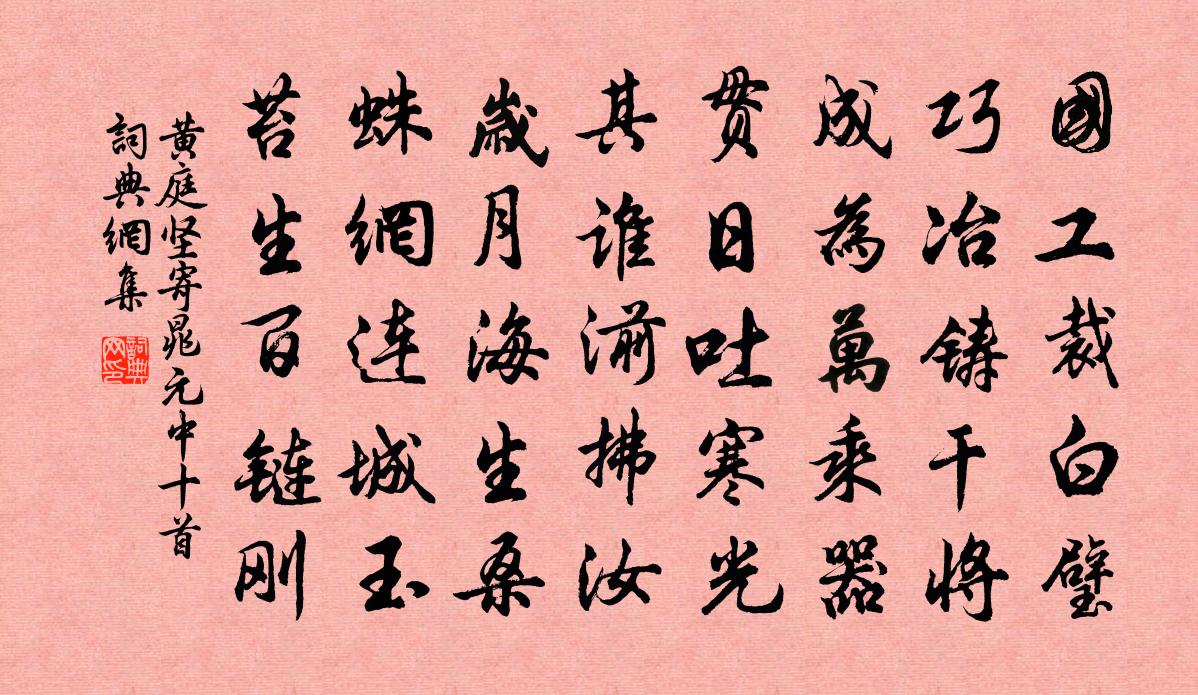 國工裁白璧
巧冶铸干將
成為萬乘器
贯日吐寒光
其谁湔拂汝
歲月海生桑
蛛網连城玉
苔生百链刚
黄庭坚寄晁元中十首
詞典網集
詞典
网印